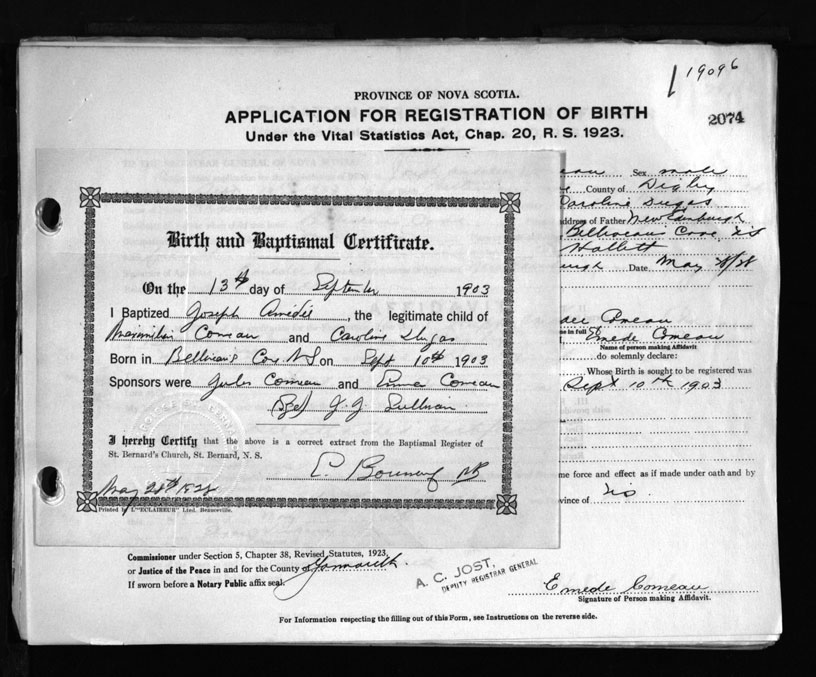 19096
PROVINCE OF NOVA SCOTIA.
APPLICATION FOR REGISTRATION OF BIRTH
2074
Under the Vital Statistics Act, Chap. 20, R. S. 1923.
Sex male
County of Digby
Caroline Dugas
address of Father New Edinburgh
Belliveau's Cove, N.S.
Hallett
Date May 28/28
Birth and Baptismal Certificate.
On the 13th day of September 1903
I Baptized Joseph Amedie, the legitimate child of
Maximilien Comeau and Caroline Dugas
Born in Belliveau's Cove N S on Sept 10th 1903
Sponsors were Jules Comeau and Comeau
(Sgd) J. J. Sullivan
I hereby Certify that the above is a correct extract from the Baptismal Register of
St. Bernard's Church, St. Bernard, N. S.
May 28th
Printed by L'"ECLAIREUR" Ltd. Beauceville.
Comeau
in full Emede Comeau
Name of person making Affidavit
do solemnly declare:
Whose Birth is sought to be registered was
Sept 10th 1903
me force and effect as if made under oath and by
vince of
Commissioner under Section 5, Chapter 38, Revised Statutes, 1923,
or Justice of the Peace in and for the County of Yarmouth.
If sworn before a Notary Public affix seal.
A. C. JOST,
DEPUTY REGISTRAR GENERAL
Emede Comeau
Signature of Person making Affidavit.
For Information respecting the filling out of this Form, see Instructions on the reverse side.